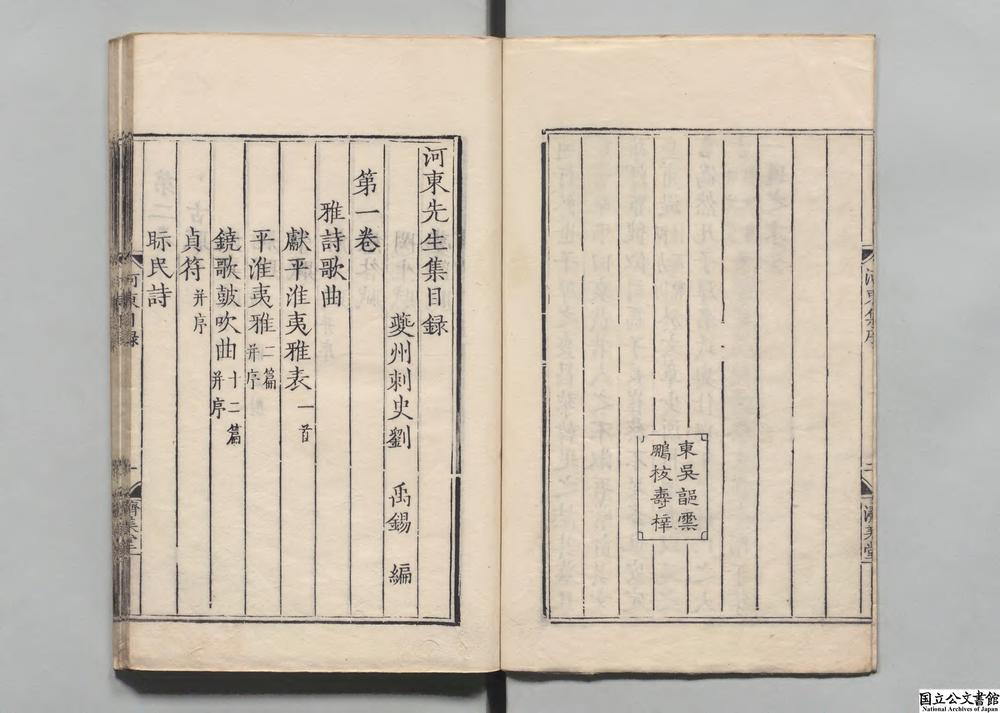 河東集序
二
濟美堂
東吳郭雲
鵬校壽梓
河東先生集目録
夔州刺史劉 禹錫 編
第一卷
雅詩歌曲
獻平淮夷雅表一首
平淮夷雅二篇并序
鐃歌皷吹曲十二篇并序
貞符并序
眎民詩
河東目録
一
濟美堂
国立公文書館
National Archives of Japan